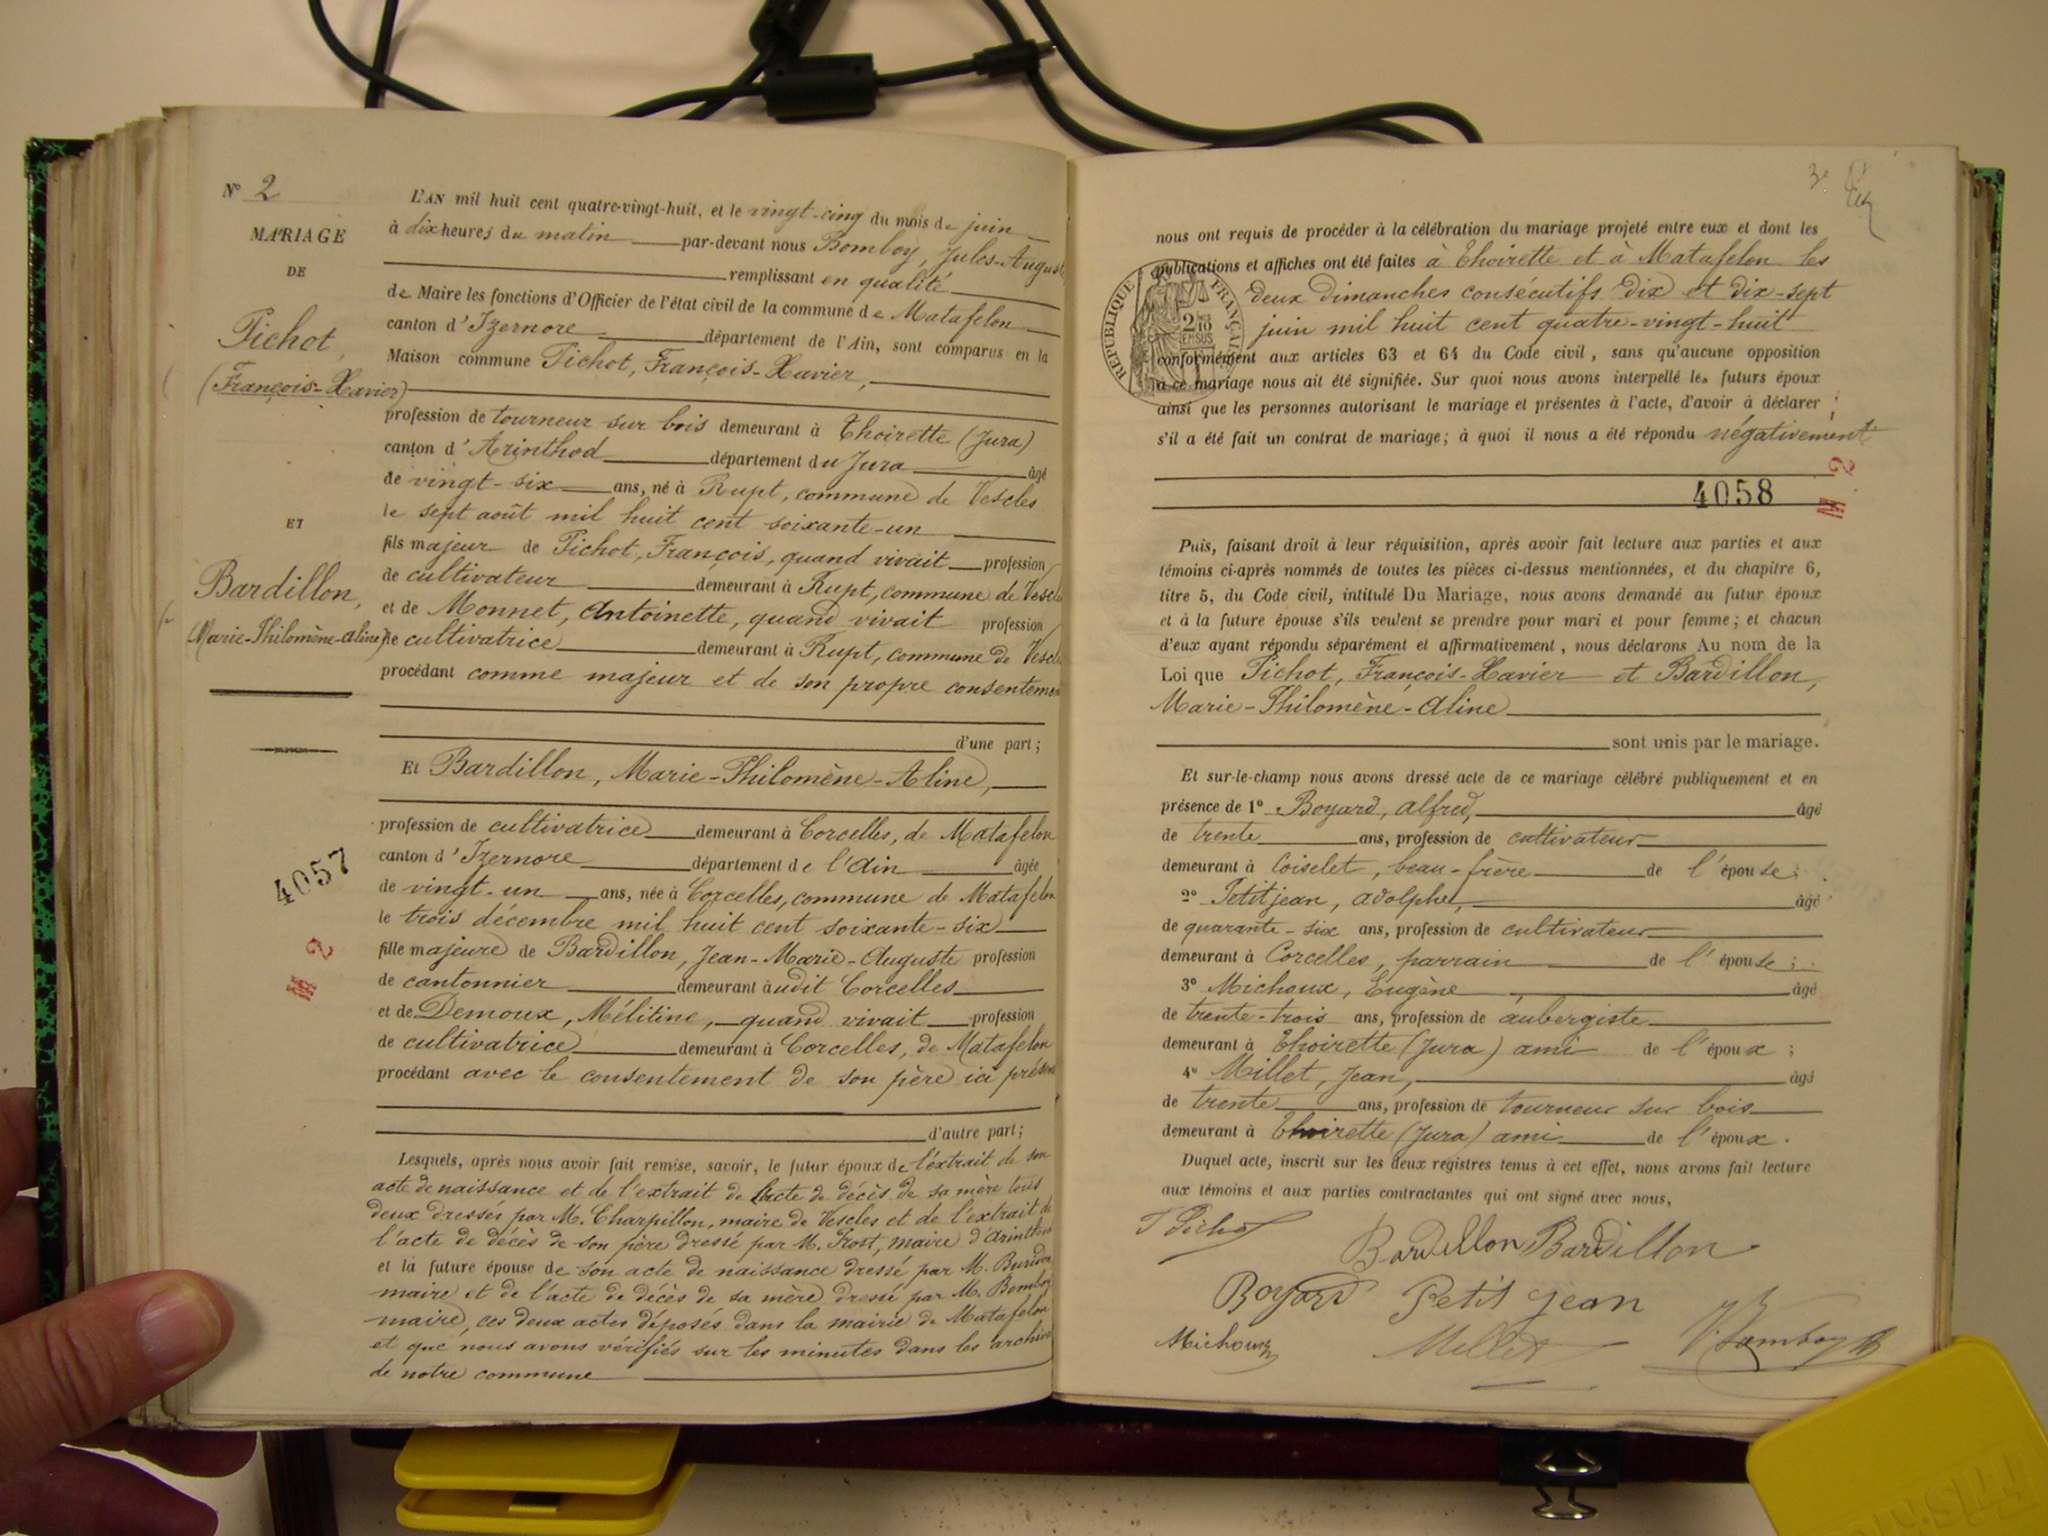 N° 2
MARIAGE
DE
Pichot,
(François-Xavier)
ET
Bardillon,
(Marie-Philomène-Aline)
4057
M 2
L'AN mil huit cent quatre-vingt-huit, et le vingt-cinq du mois de juin
à dix heures du matin par-devant nous Bomboy, Jules-Auguste
remplissant en qualité
de Maire les fonctions d'Officier de l'état civil de la commune de Matafelon
canton d'Izernore département de l'Ain, sont comparus en la
Maison commune Pichot, François-Xavier,
profession de tourneur sur bois demeurant à Thoirette (Jura)
canton d'Arinthod département du Jura âgé
de vingt-six ans, né à Rupt, commune de Vescles
le sept août mil huit cent soixante-un
fils majeur de Pichot, François, quand vivait profession
de cultivateur demeurant à Rupt, commune de Vescles
et de Monnet, Antoinette, quand vivait profession
de cultivatrice demeurant à Rupt, commune de Vescles
procédant comme majeur et de son propre consentement
d'une part;
Et Bardillon, Marie-Philomène-Aline,
profession de cultivatrice demeurant à Corcelles, de Matafelon
canton d'Izernore département de l'Ain âgée
de vingt-un ans, née à Corcelles, commune de Matafelon
le trois décembre mil huit cent soixante-six
fille majeure de Bardillon, Jean-Marie-Auguste profession
de cantonnier demeurant audit Corcelles
et de Demoux, Mélitine, quand vivait profession
de cultivatrice demeurant à Corcelles, de Matafelon
procédant avec le consentement de son père ici présent
d'autre part;
Lesquels, après nous avoir fait remise, savoir, le futur époux de l'extrait de son
acte de naissance et de l'extrait de l'acte de décès de sa mère tous
deux dressés par M. Charpillon, maire de Vescles et de l'extrait de
l'acte de décès de son père dressé par M. Prost, maire d'Arinthod
et la future épouse de son acte de naissance dressé par M.
maire et de l'acte de décès de sa mère dressé par M. Bomboy
maire, ces deux actes déposés dans la mairie de Matafelon
et que nous avons vérifiés sur les minutes dans les archives
de notre commune
3e
nous ont requis de procéder à la célébration du mariage projeté entre eux et dont les
publications et affiches ont été faites à Thoirette et à Matafelon les
deux dimanches consécutifs dix et dix-sept
juin mil huit cent quatre-vingt-huit
RÉPUBLIQUE FRANÇAISE
conformément aux articles 63 et 64 du Code civil, sans qu'aucune opposition
à ce mariage nous ait été signifiée. Sur quoi nous avons interpellé les futurs époux
ainsi que les personnes autorisant le mariage et présentes à l'acte, d'avoir à déclarer
s'il a été fait un contrat de mariage; à quoi il nous a été répondu négativement
4058
M 2
Puis, faisant droit à leur réquisition, après avoir fait lecture aux parties et aux
témoins ci-après nommés de toutes les pièces ci-dessus mentionnées, et du chapitre 6,
titre 5, du Code civil, intitulé Du Mariage, nous avons demandé au futur époux
et à la future épouse s'ils veulent se prendre pour mari et pour femme; et chacun
d'eux ayant répondu séparément et affirmativement, nous déclarons Au nom de la
Loi que Pichot, François-Xavier et Bardillon,
Marie-Philomène-Aline
sont unis par le mariage.
Et sur-le-champ nous avons dressé acte de ce mariage célébré publiquement et en
présence de 1° Boyard, Alfred, âgé
de trente ans, profession de cultivateur
demeurant à Coiselet, beau-frère de l'épouse;
2° Petitjean, Adolphe, âgé
de quarante-six ans, profession de cultivateur
demeurant à Corcelles, parrain de l'épouse;
3° Michoux, Eugène âgé
de trente-trois ans, profession de aubergiste
demeurant à Thoirette (Jura) ami de l'époux;
4° Millet, Jean, âgé
de trente ans, profession de tourneur sur bois
demeurant à Thoirette (Jura) ami de l'époux.
Duquel acte, inscrit sur les deux registres tenus à cet effet, nous avons fait lecture
aux témoins et aux parties contractantes qui ont signé avec nous,
Pichot
Bardillon Bardillon
Boyard Petit jean
Michoux Millet J. Bomboy